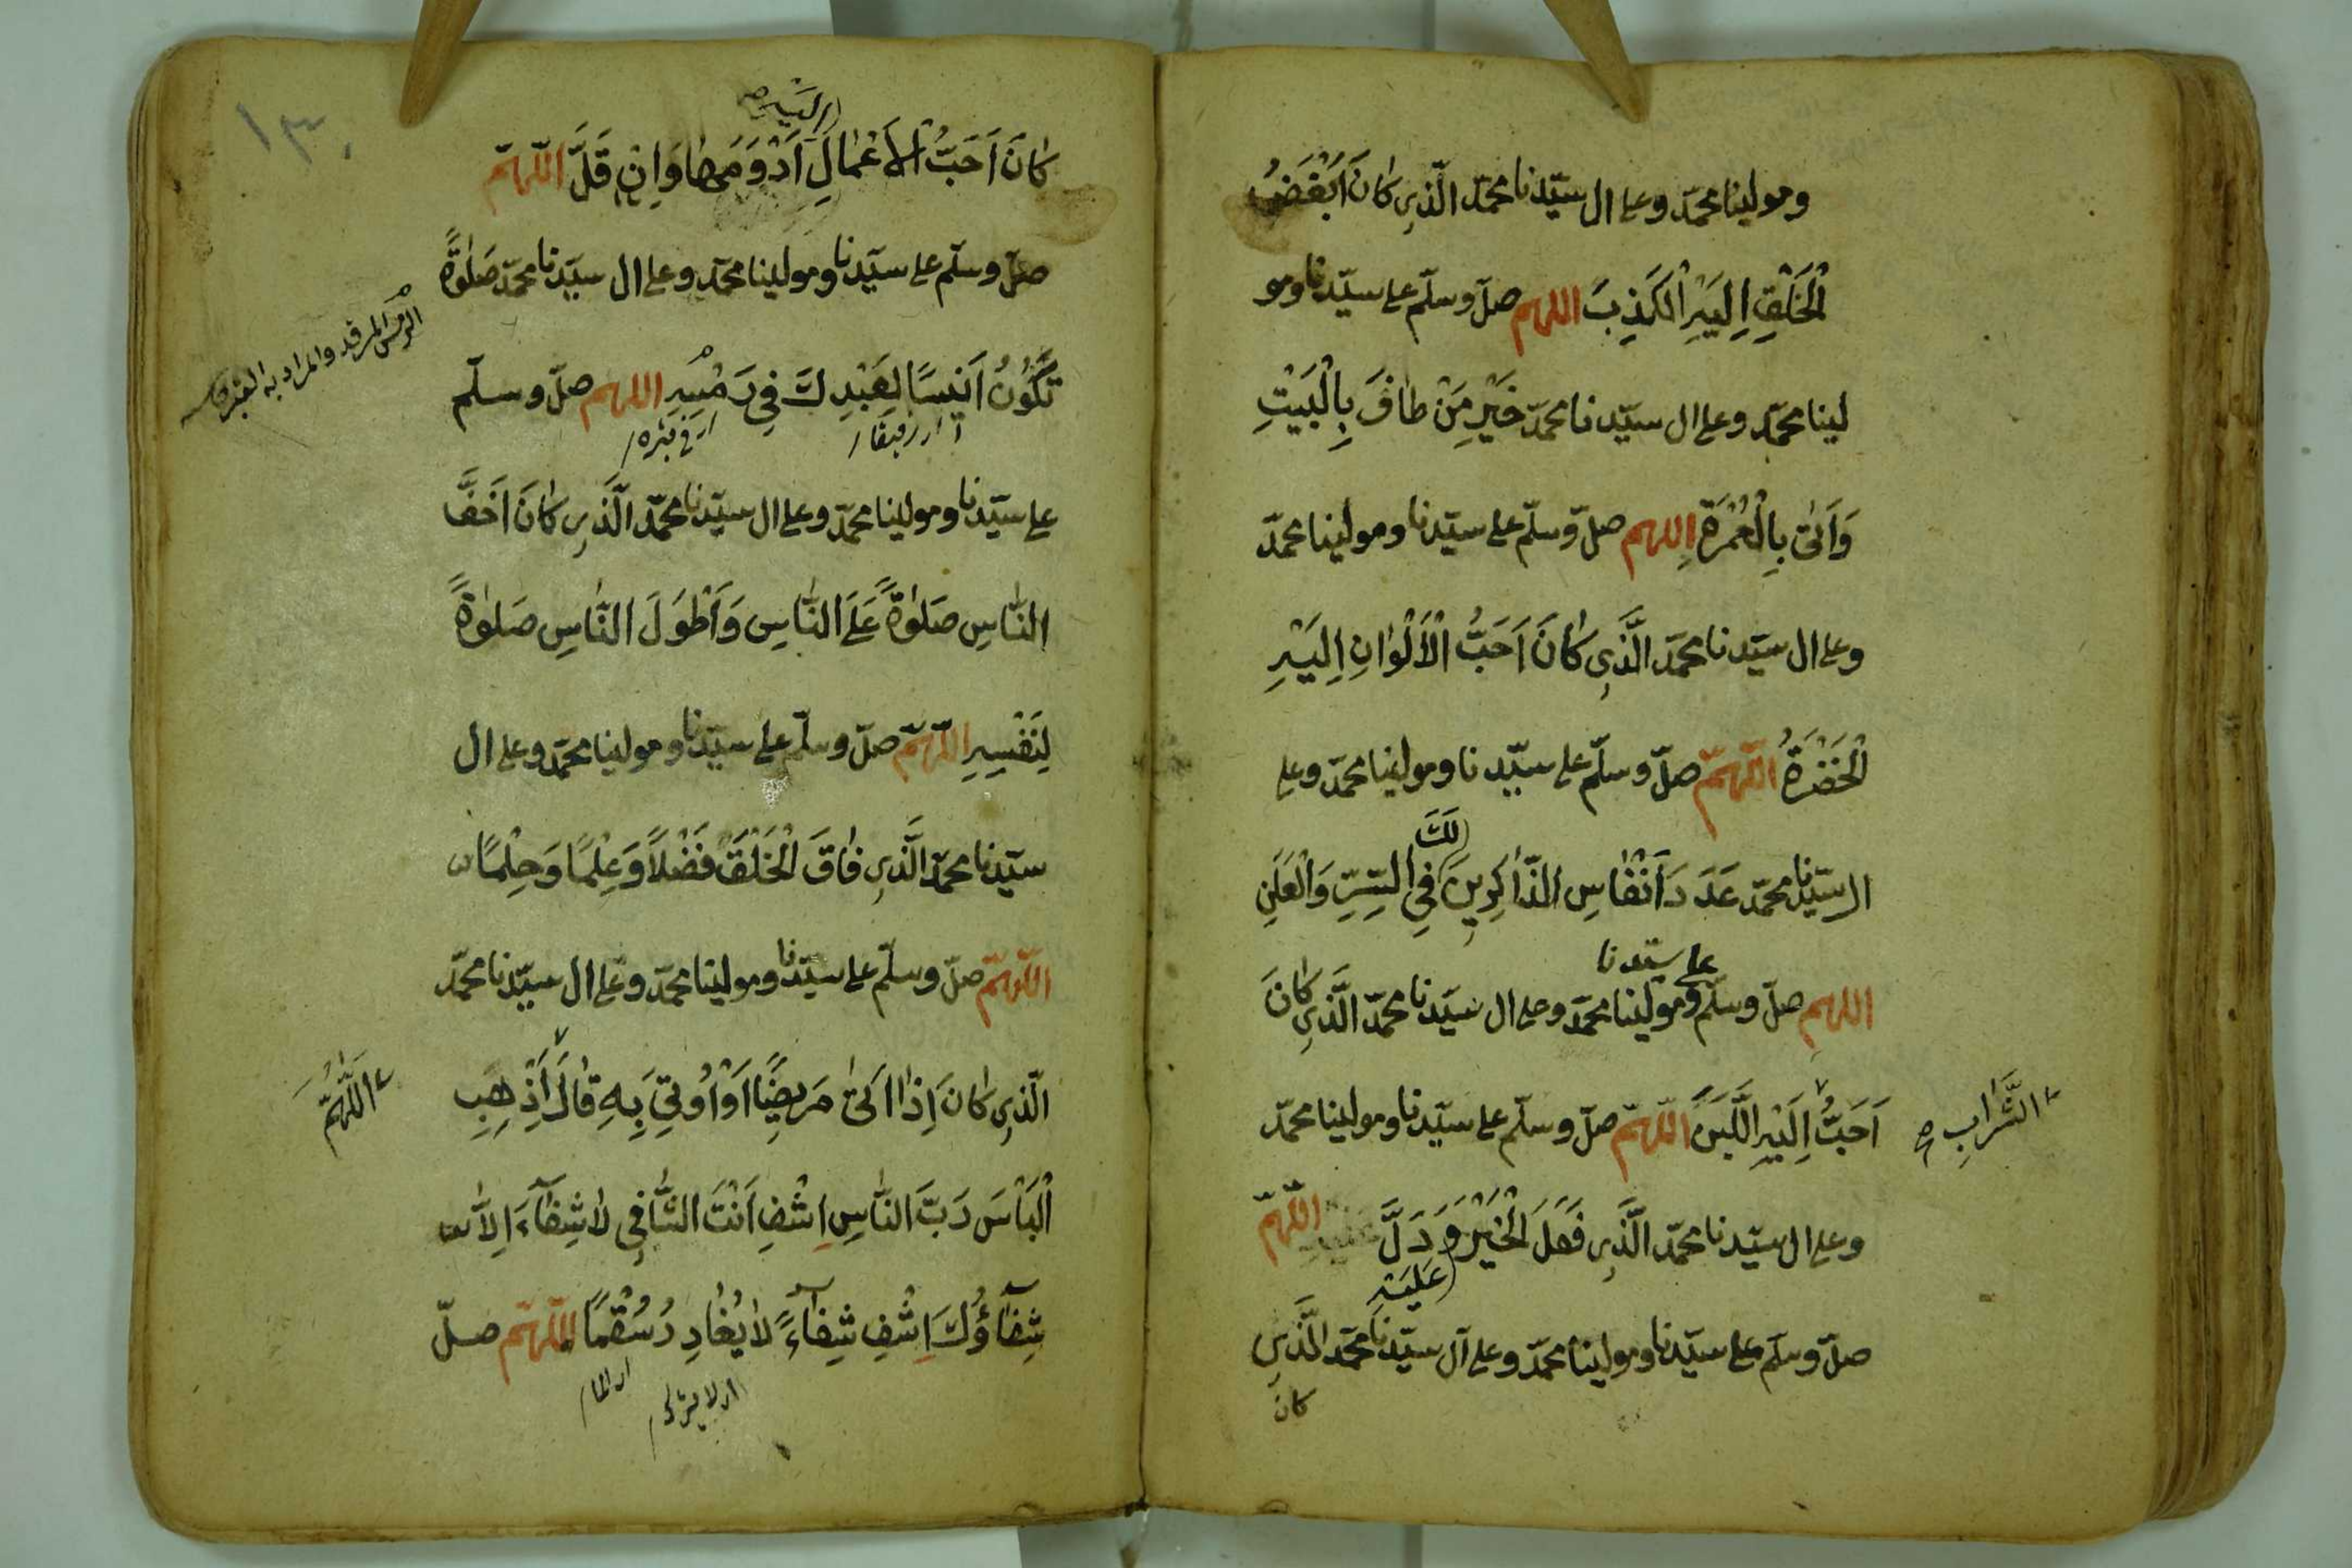 ومولينا محمّد وعلى ال سيّدنا محمّد الّذي كانَ اَبْغَضُ
الْخَلْقِ اِلَيْهِ الْكَذِبَ اللهم صلّ وسلّم على سيّدنا ومو
لينا محمّد وعلى ال سيّدنا محمّد خَيْرِ مَنْ طافَ بِالْبَيْتِ
وَاَتٰى بِالْعُمْرَةِ اللهم صلّ وسلّم على سيّدنا ومولينا محمّد
وعلى ال سيّدنا محمّد الَّذي كانَ اَحَبُّ الْاَلْوانِ اِلَيْهِ
الْخَضْرَةُ اللّهمّ صلّ وسلّم على سيّدنا ومولينا محمّد وعلى
لَكَ
ال سيّدنا محمّد عَدَدَ اَنْفاسِ الذّاكِرينَ فِي السِّرِّ وَالْعَلَنِ
على سيّدنا
اللهم صلّ وسلّم ومولينا محمّد وعلى ال سيّدنا محمّد الَّذي كانَ
اَحَبُّ اِلَيْهِ اللَّبَنَ اللّهمّ صلّ وسلّم على سيّدنا ومولينا محمّد
الشَّرابِ صح
وعلى ال سيّدنا محمّد الَّذي فَعَلَ الْخَيْرَ وَدَلَّ اللّهمّ
عَلَيْهِ
صلّ وسلّم على سيّدنا ومولينا محمّد وعلى آل سيّدنا محمّد الَّذي
كان
١٣٠
اِلَيْهِ
كانَ اَحَبُّ الْاَعْمالِ اَدْوَمَها وَاِنْ قَلَّ اللّهمّ
صلّ وسلّم على سيّدنا ومولينا محمّد وعلى ال سيّدنا محمّد صَلٰوةً
الرمس المرقد والمراد به القبر
تَكُونُ اَنيسًا لِعَبْدِكَ في رَمْسِهِ اللهم صلّ وسلّم
اي رفيقا
اي في قبره
على سيّدنا ومولينا محمّد وعلى ال سيّدنا محمّد الَّذي كانَ اَخَفَّ
النّاسِ صَلٰوةً عَلَى النّاسِ وَاَطْوَلَ النّاسِ صَلٰوةً
لِنَفْسِهِ اللّهمّ صلّ وسلّم على سيّدنا ومولينا محمّد وعلى ال
سيّدنا محمّد الَّذي فاقَ الْخَلْقَ فَضْلًا وَعِلْمًا وَحِلْمًا
اللّهمّ صلّ وسلّم على سيّدنا ومولينا محمّد وعلى ال سيّدنا محمّد
الّذي كانَ اِذا اَتٰى مَريضًا اَوْ اُوتِيَ بِهِ قالَ اَذْهِبِ
اَللّٰهُمَّ
الْبَاْسَ رَبَّ النّاسِ اِشْفِ اَنْتَ الشّافي لا شِفآءَ اِلّا
شِفآؤُكَ اِشْفِ شِفآءً لا يُغادِرُ سُقْمًا اللّهمّ صلّ
اي لا يترك
اي الما